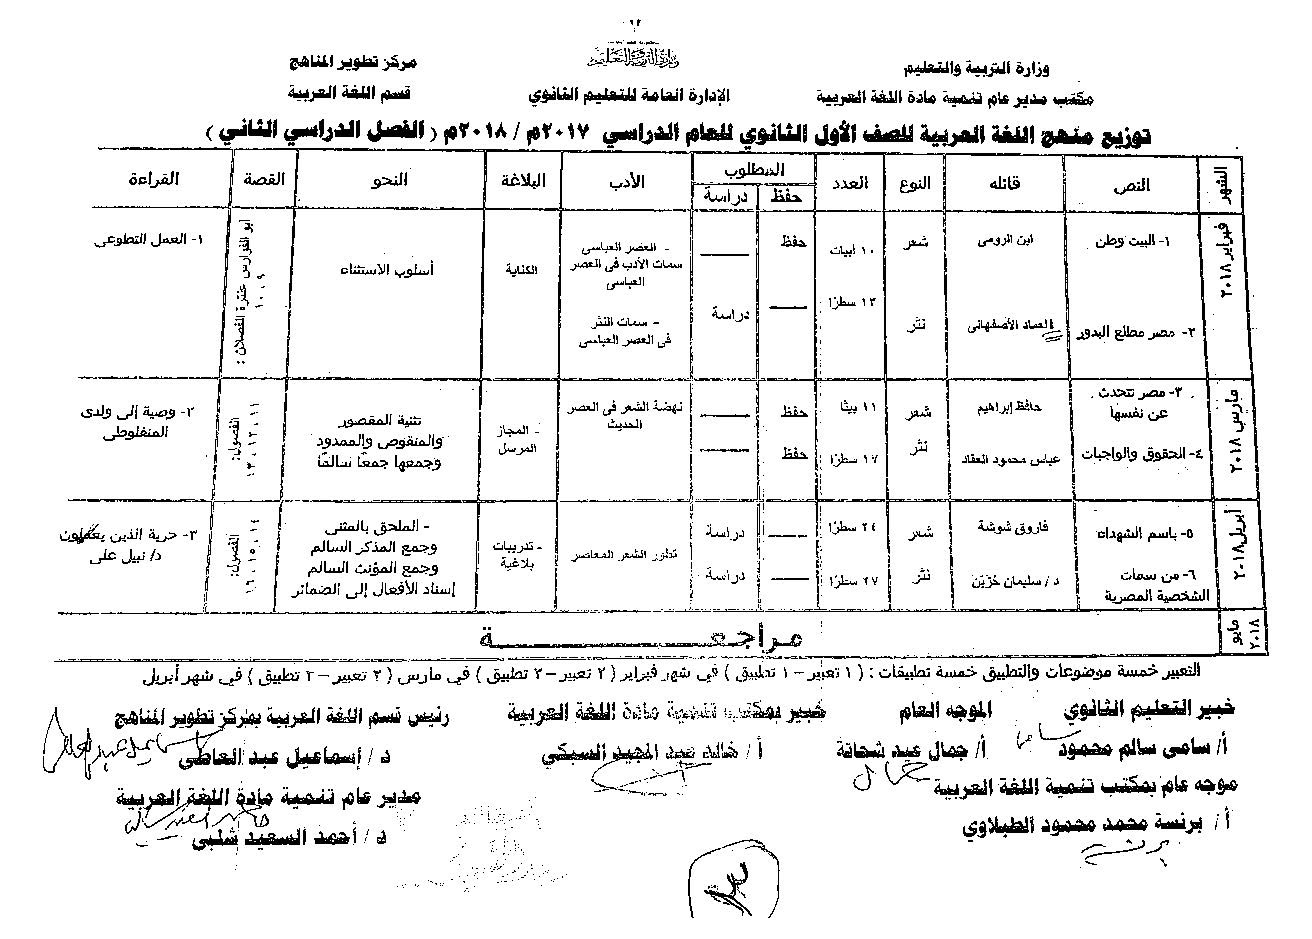 وزارة التربية والتعليم
مكتب مدير عام تنمية مادة اللغة العربية
وزارة التربية والتعليم
الإدارة العامة للتعليم الثانوي
مركز تطوير المناهج
قسم اللغة العربية
توزيع منهج اللغة العربية للصف الأول الثانوي للعام الدراسي ٢٠١٧م / ٢٠١٨م ( الفصل الدراسي الثاني )
الشهر النص قائله النوع العدد المطلوب الأدب البلاغة النحو القصة القراءة
حفظ دراسة
فبراير ٢٠١٨
١- البيت وطن ابن الرومى شعر ١٠ أبيات حفظ
٢- مصر مطلع البدور العماد الأصفهانى نثر ١٣ سطرًا دراسة
- العصر العباسى
سمات الأدب فى العصر
العباسى
- سمات النثر
فى العصر العباسى
الكناية
أسلوب الاستثناء
أبو الفوارس عنترة الفصلان :
٩ ، ١٠
١- العمل التطوعى
مارس ٢٠١٨
٣- مصر تتحدث
عن نفسها
حافظ إبراهيم شعر ١١ بيتًا حفظ
٤- الحقوق والواجبات عباس محمود العقاد نثر ١٧ سطرًا حفظ
نهضة الشعر فى العصر
الحديث
- المجاز
المرسل
تثنية المقصور
والمنقوص والممدود
وجمعها جمعًا سالمًا
الفصول:
١١ ، ١٢ ، ١٣
٢- وصية إلى ولدى
المنفلوطى
أبريل ٢٠١٨
٥- باسم الشهداء فاروق شوشة شعر ٢٤ سطرًا دراسة
٦- من سمات
الشخصية المصرية
د/ سليمان حُزَيّن نثر ٢٧ سطرًا دراسة
تطور الشعر المعاصر
- تدريبات
بلاغية
- الملحق بالمثنى
وجمع المذكر السالم
وجمع المؤنث السالم
إسناد الأفعال إلى الضمائر
الفصول:
١٤ ، ١٥ ، ١٦
٣- حرية الذين يعقلون
د/ نبيل على
مايو ٢٠١٨
مراجعـــــــة
التعبير خمسة موضوعات والتطبيق خمسة تطبيقات : ( ١ تعبير – ١ تطبيق ) في شهر فبراير ( ٢ تعبير – ٢ تطبيق ) في مارس ( ٢ تعبير – ٢ تطبيق ) في شهر أبريل
خبير التعليم الثانوي الموجه العام خبير بمكتب تنمية مادة اللغة العربية رئيس قسم اللغة العربية بمركز تطوير المناهج
أ/ سامى سالم محمود أ/ جمال عيد شحاتة أ / خالد عبد المجيد السبكي د / إسماعيل عبد العاطى
موجه عام بمكتب تنمية اللغة العربية مدير عام تنمية مادة اللغة العربية
أ/ برنسة محمد محمود الطبلاوي د / أحمد السعيد شلبى